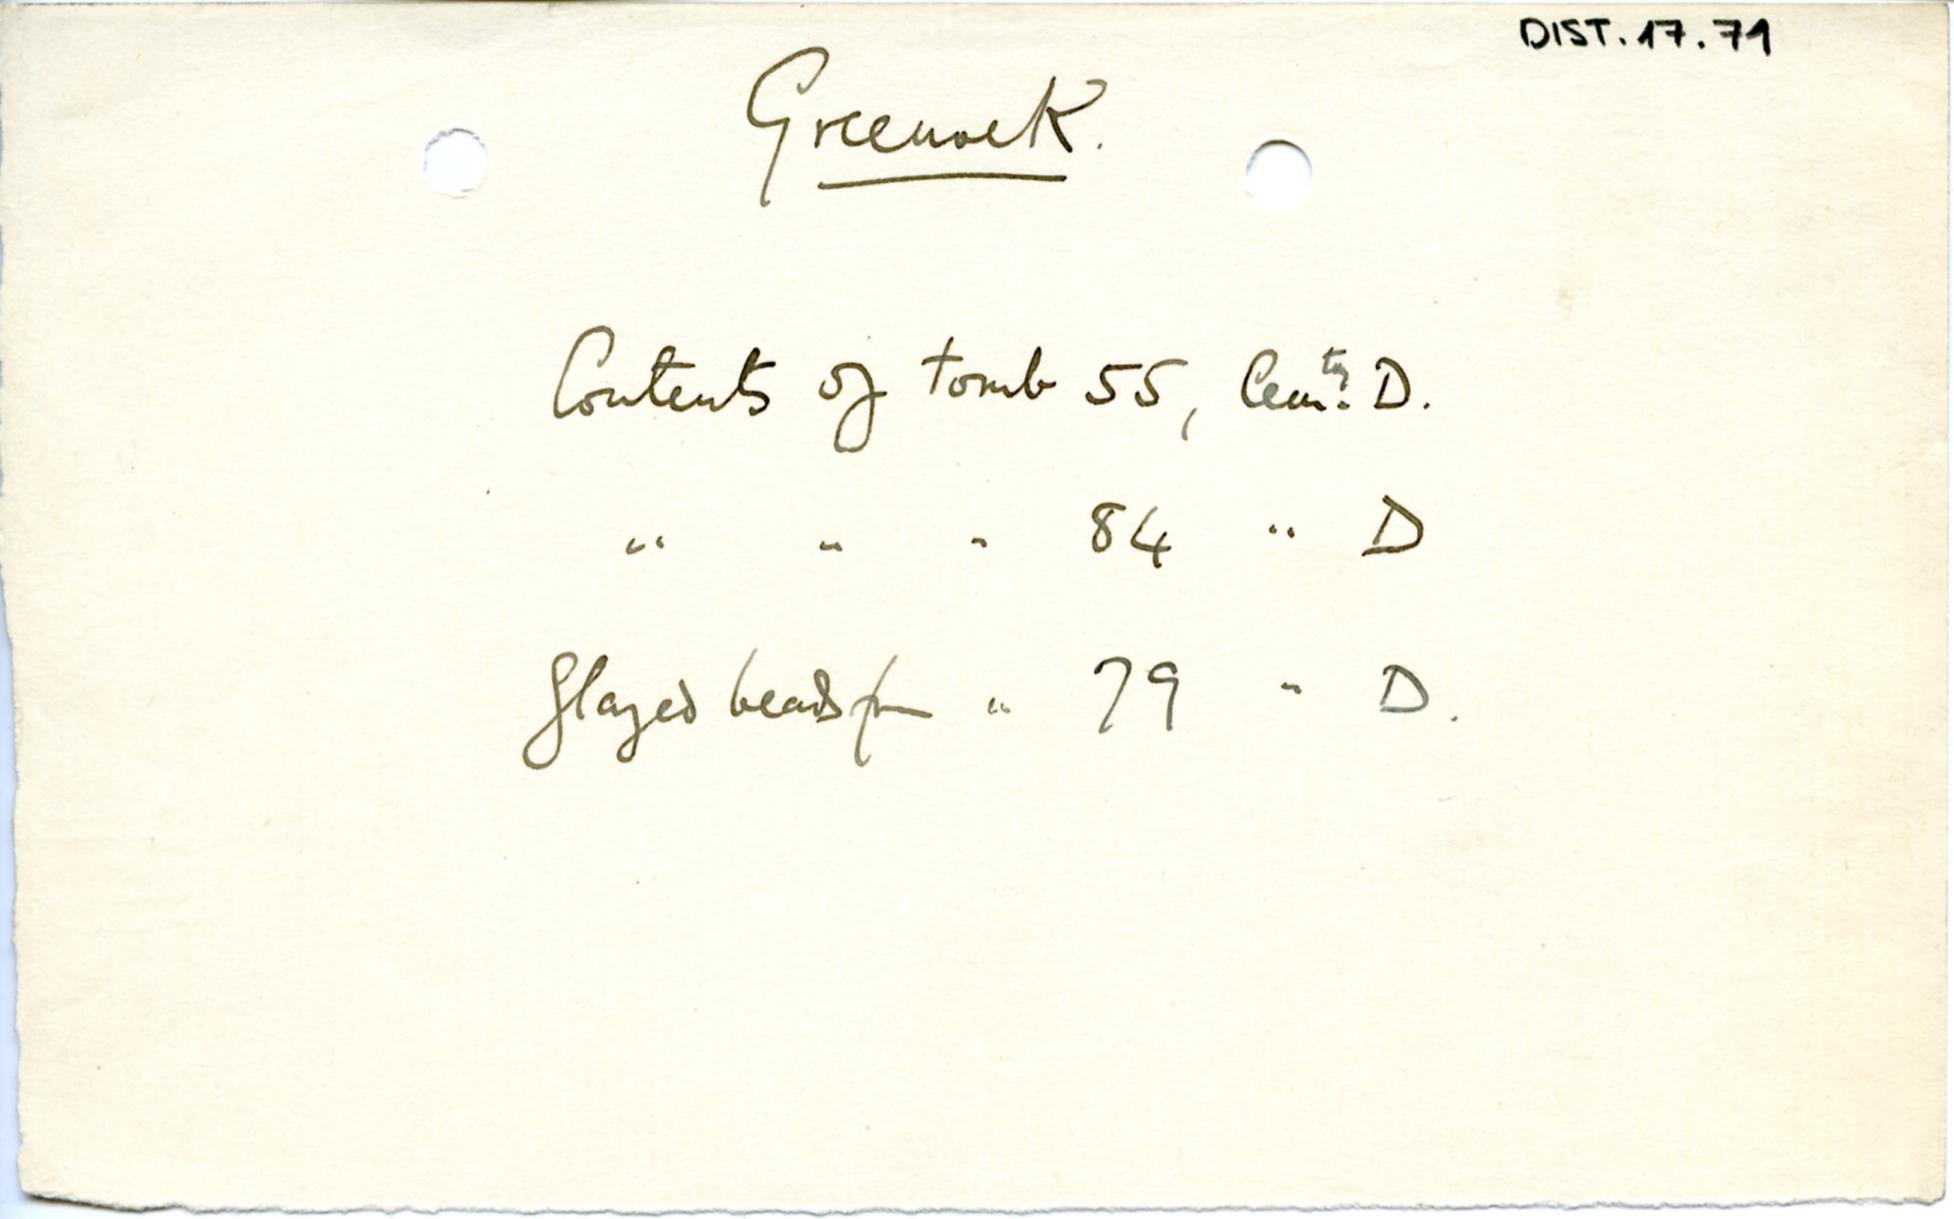 DIST.17.71
Greenock.
Contents of tomb 55, Cem.ty D.
" " " 84 " D
Glazed beads from " 79 " D.